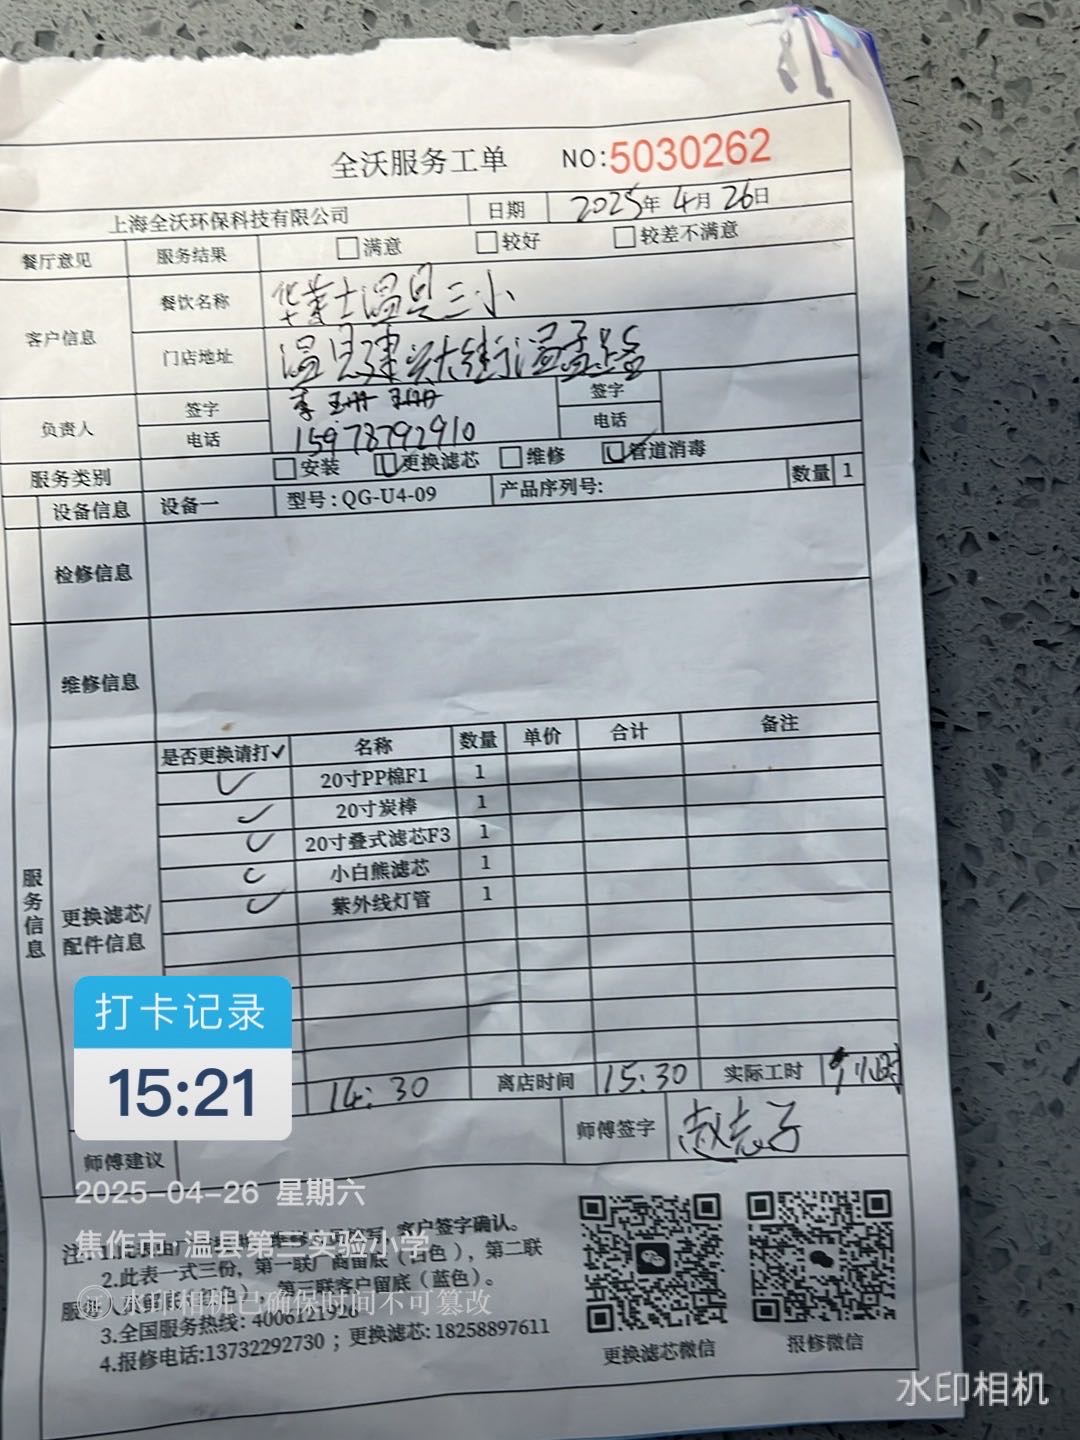 全沃服务工单 NO:5030262
上海全沃环保科技有限公司 日期 2025年 4月 26日
餐厅意见 服务结果 满意 较好 较差不满意
客户信息 餐饮名称 华莱士温县三小
门店地址 温县建 大街 温孟
负责人 签字 李 签字
电话 15978792910 电话
服务类别 安装 更换滤芯 维修 管道消毒
设备信息 设备一 型号:QG-U4-09 产品序列号: 数量 1
检修信息
维修信息
是否更换请打✓ 名称 数量 单价 合计 备注
✓ 20寸PP棉F1 1
✓ 20寸炭棒 1
✓ 20寸叠式滤芯F3 1
✓ 小白熊滤芯 1
✓ 紫外线灯管 1
服务信息
更换滤芯/
配件信息
打卡记录
15:21
14:30 离店时间 15:30 实际工时 小时
师傅建议 师傅签字 赵志子
2025-04-26 星期六
焦作市·温县第三实验小学
水印相机已确保时间不可篡改
注:1. 客户签字确认。
2.此表一式三份，第一联厂商留底（白色），第二联
服务人员 第三联客户留底（蓝色）。
3.全国服务热线:4006121928
4.报修电话:13732292730；更换滤芯:18258897611
更换滤芯微信 报修微信
水印相机